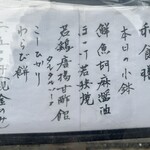 和食膳
本日の小鉢
鮮魚胡麻醤油
ほっけ若狭焼
若鶏唐揚甘酢餡
タルタルソース
こしひかり
わらび餅